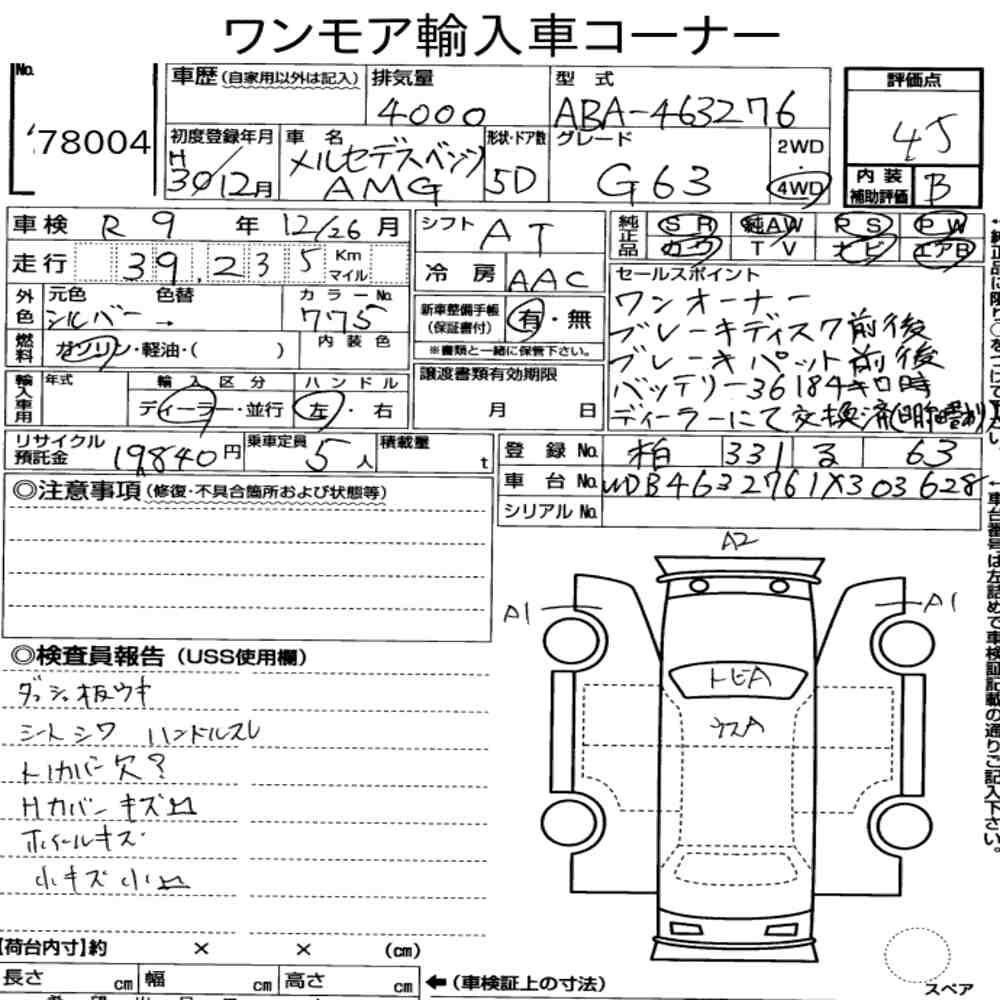 ワンモア輸入車コーナー
No.
78004
車歴(自家用以外は記入)
排気量
4000
型 式
ABA-463276
評価点
45
初度登録年月
H
30/12月
車 名
メルセデスベンツ
AMG
形状・ドア数
5D
グレード
G63
2WD
・
4WD
内 装
補助評価
B
車検 R 9 年 12/26 月
走行 39,235 Km マイル
外色
元色 色替
シルバー →
カラーNo.
775
燃料
ガソリン・軽油・( )
内 装 色
シフト AT
冷 房 AAC
新車整備手帳
(保証書付)
有・無
※書類と一緒に保管下さい。
純正品
SR 純AW PS PW
カワ TV ナビ エアB
セールスポイント
ワンオーナー
ブレーキディスク前後
ブレーキパット前後
バッテリー36184キロ時
ディーラーにて交換済
輸入車用
年式
輸 入 区 分
ディーラー・並行
ハ ン ド ル
左・右
譲渡書類有効期限
月 日
リサイクル
預託金
19,840円
乗車定員
5人
積載量
t
登 録 No. 柏 331 る 63
車 台 No. WDB4632761X303628
シリアル No.
◎注意事項(修復・不具合箇所および状態等)
◎検査員報告(USS使用欄)
ダッシュ板ウキ
シートシワ ハンドルスレ
トノカバー欠?
Hカバーキズ凹
ホイールキズ
小キズ小凹
A2
A1
A1
トビA
ウスA
スペア
【荷台内寸】約 × × (cm)
長さ cm 幅 cm 高さ cm
←(車検証上の寸法)
車台番号は左詰めで車検証記載の通りご記入下さい。